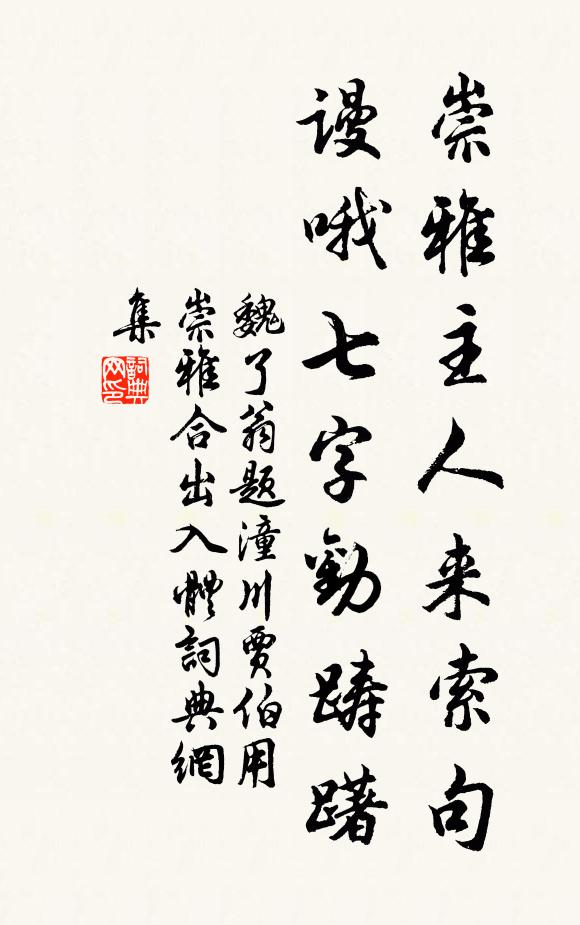 崇雅主人来索句
谩哦七字勸踌躇
魏了翁题潼川贾伯用
崇雅合出入體詞典網
集
詞典网印